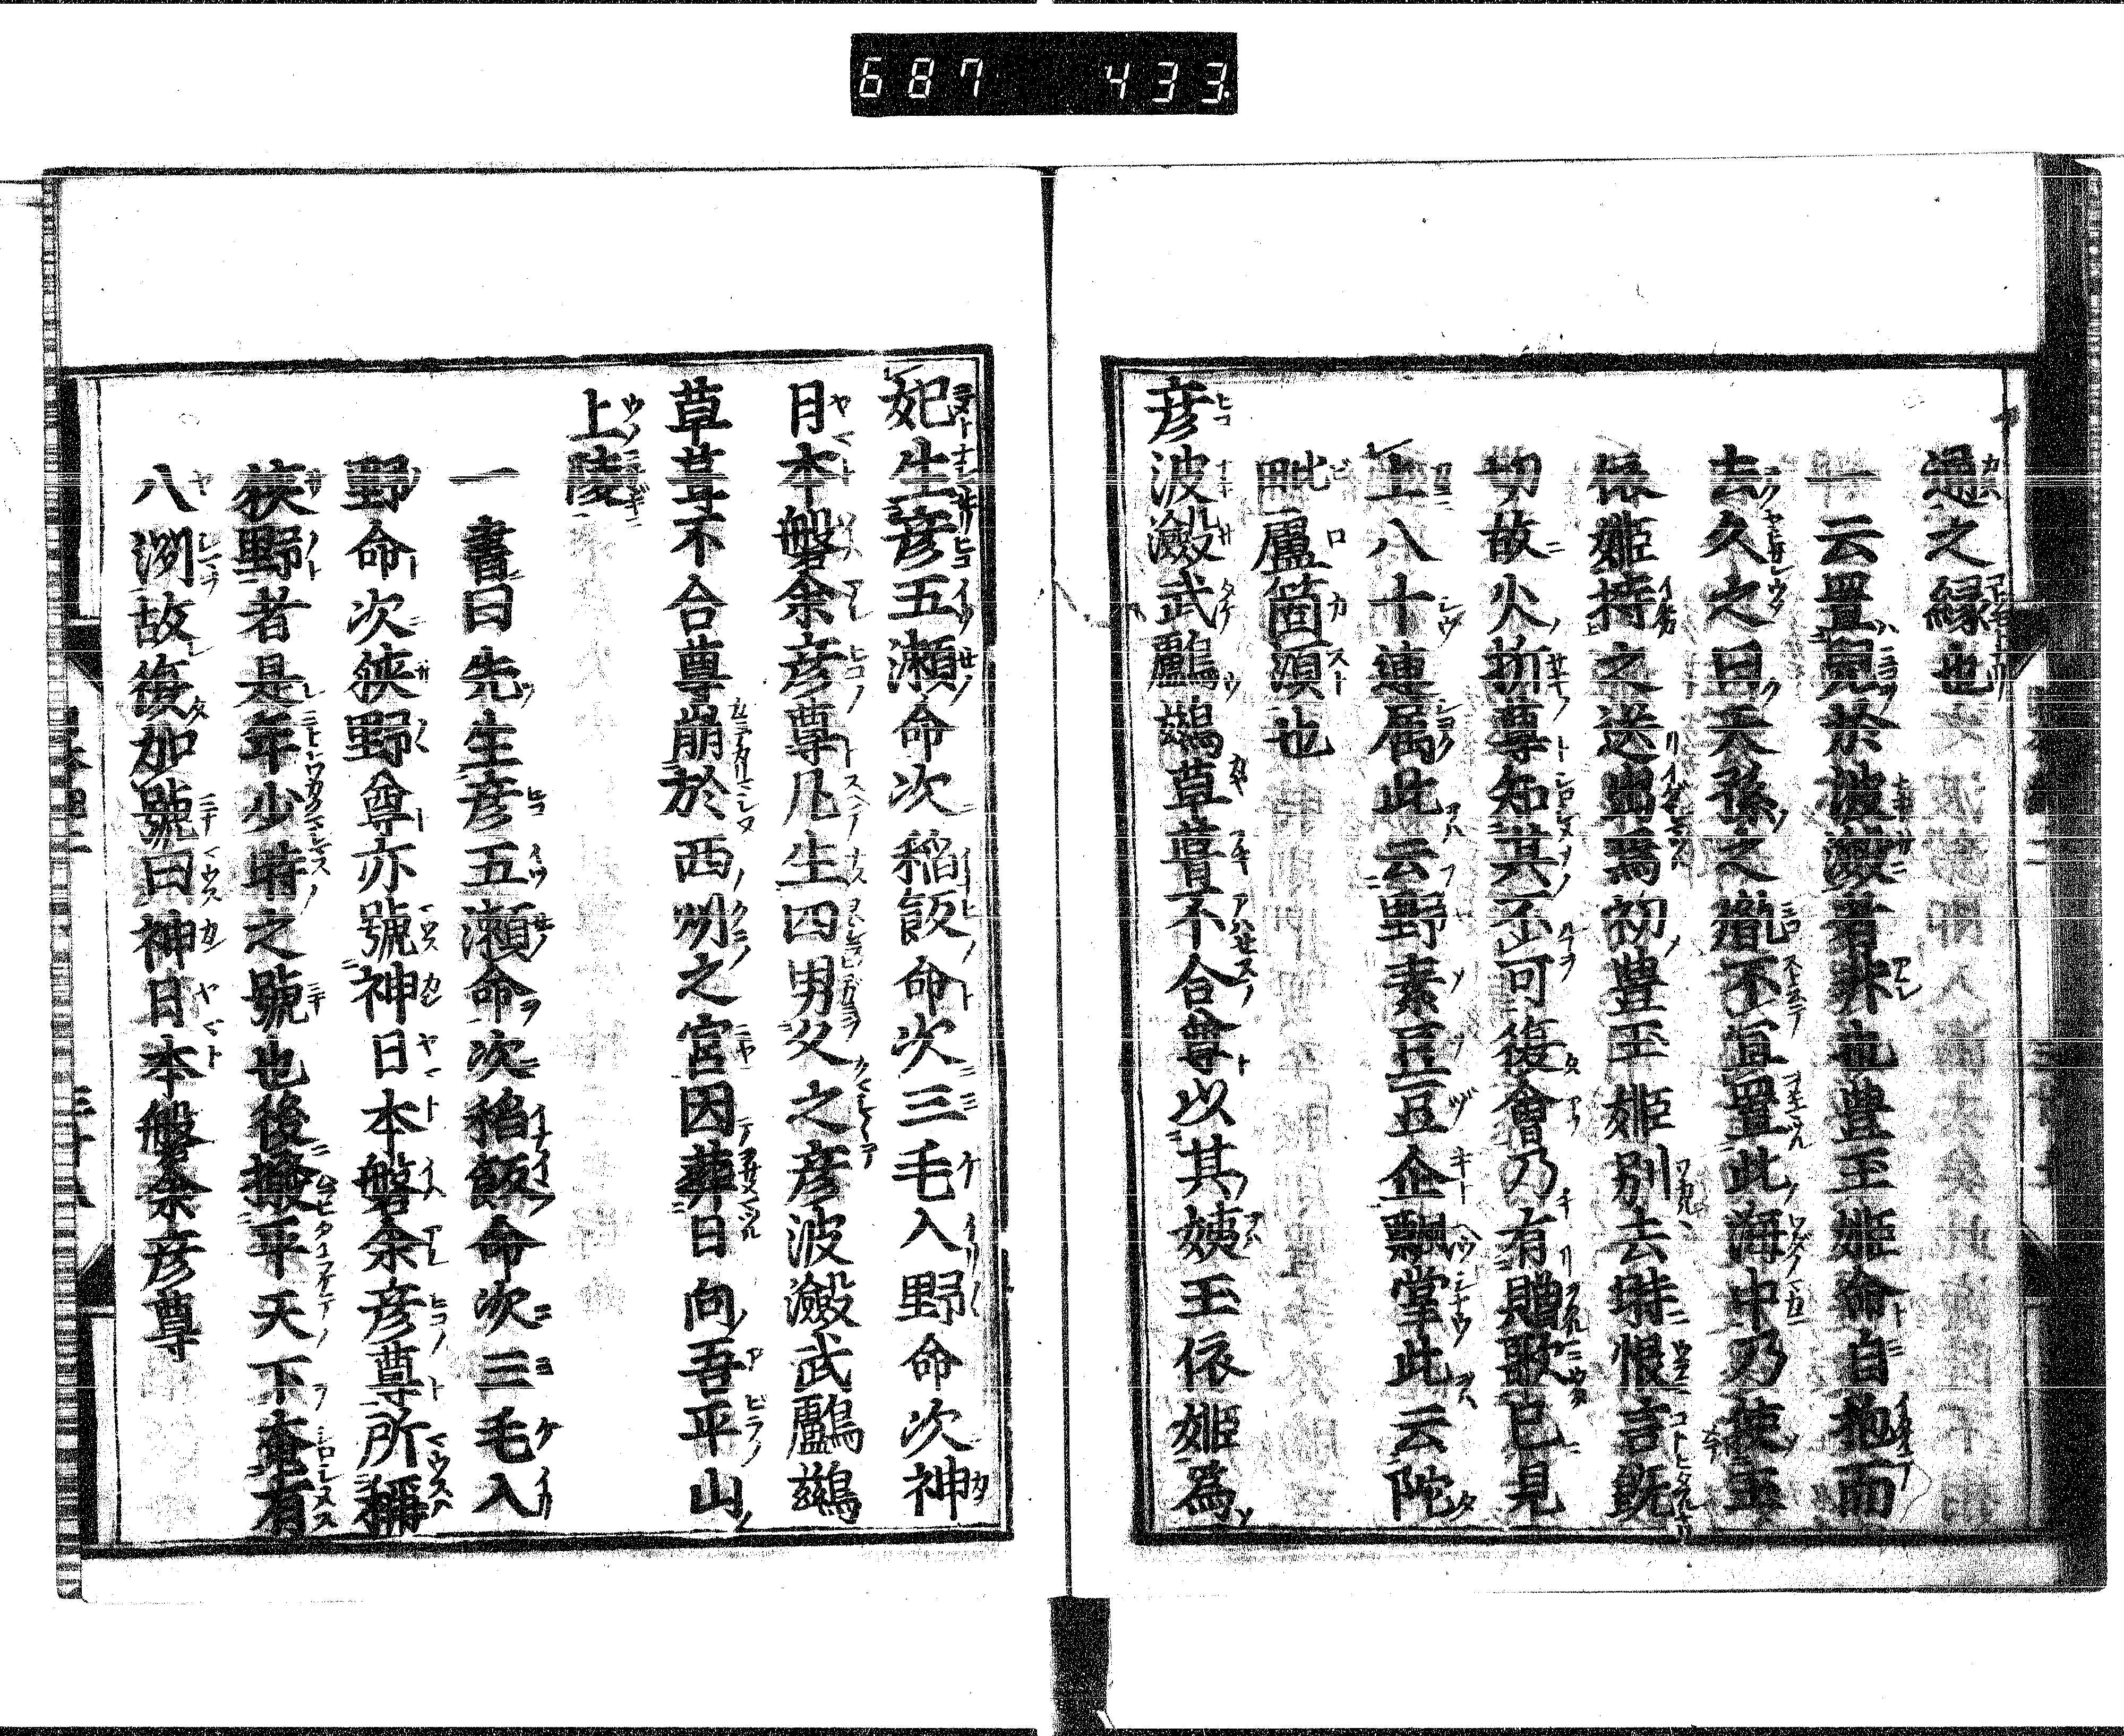 687 433
通之縁也
一云置兒於波瀲者非也豊玉姫命自抱而
去久之曰天孫之胤不宜置此海中乃使玉
依姫持之送出焉初豊玉姫別去時恨言既
切故火折尊知其不可復會乃有贈歌已見
上八十連属此云野素豆豆企飄掌此云陀
毗盧箇須也
彦波瀲武鸕鷀草葺不合尊以其姨玉依姫為
妃生彦五瀬命次稲飯命次三毛入野命次神
日本磐余彦尊凡生四男久之彦波瀲武鸕鷀
草葺不合尊崩於西洲之宮因葬日向吾平山
上陵
一書曰先生彦五瀬命次稲飯命次三毛入
野命次狭野尊亦號神日本磐余彦尊所稱
狭野者是年少時之號也後撥平天下奄有
八洲故復加號曰神日本磐余彦尊